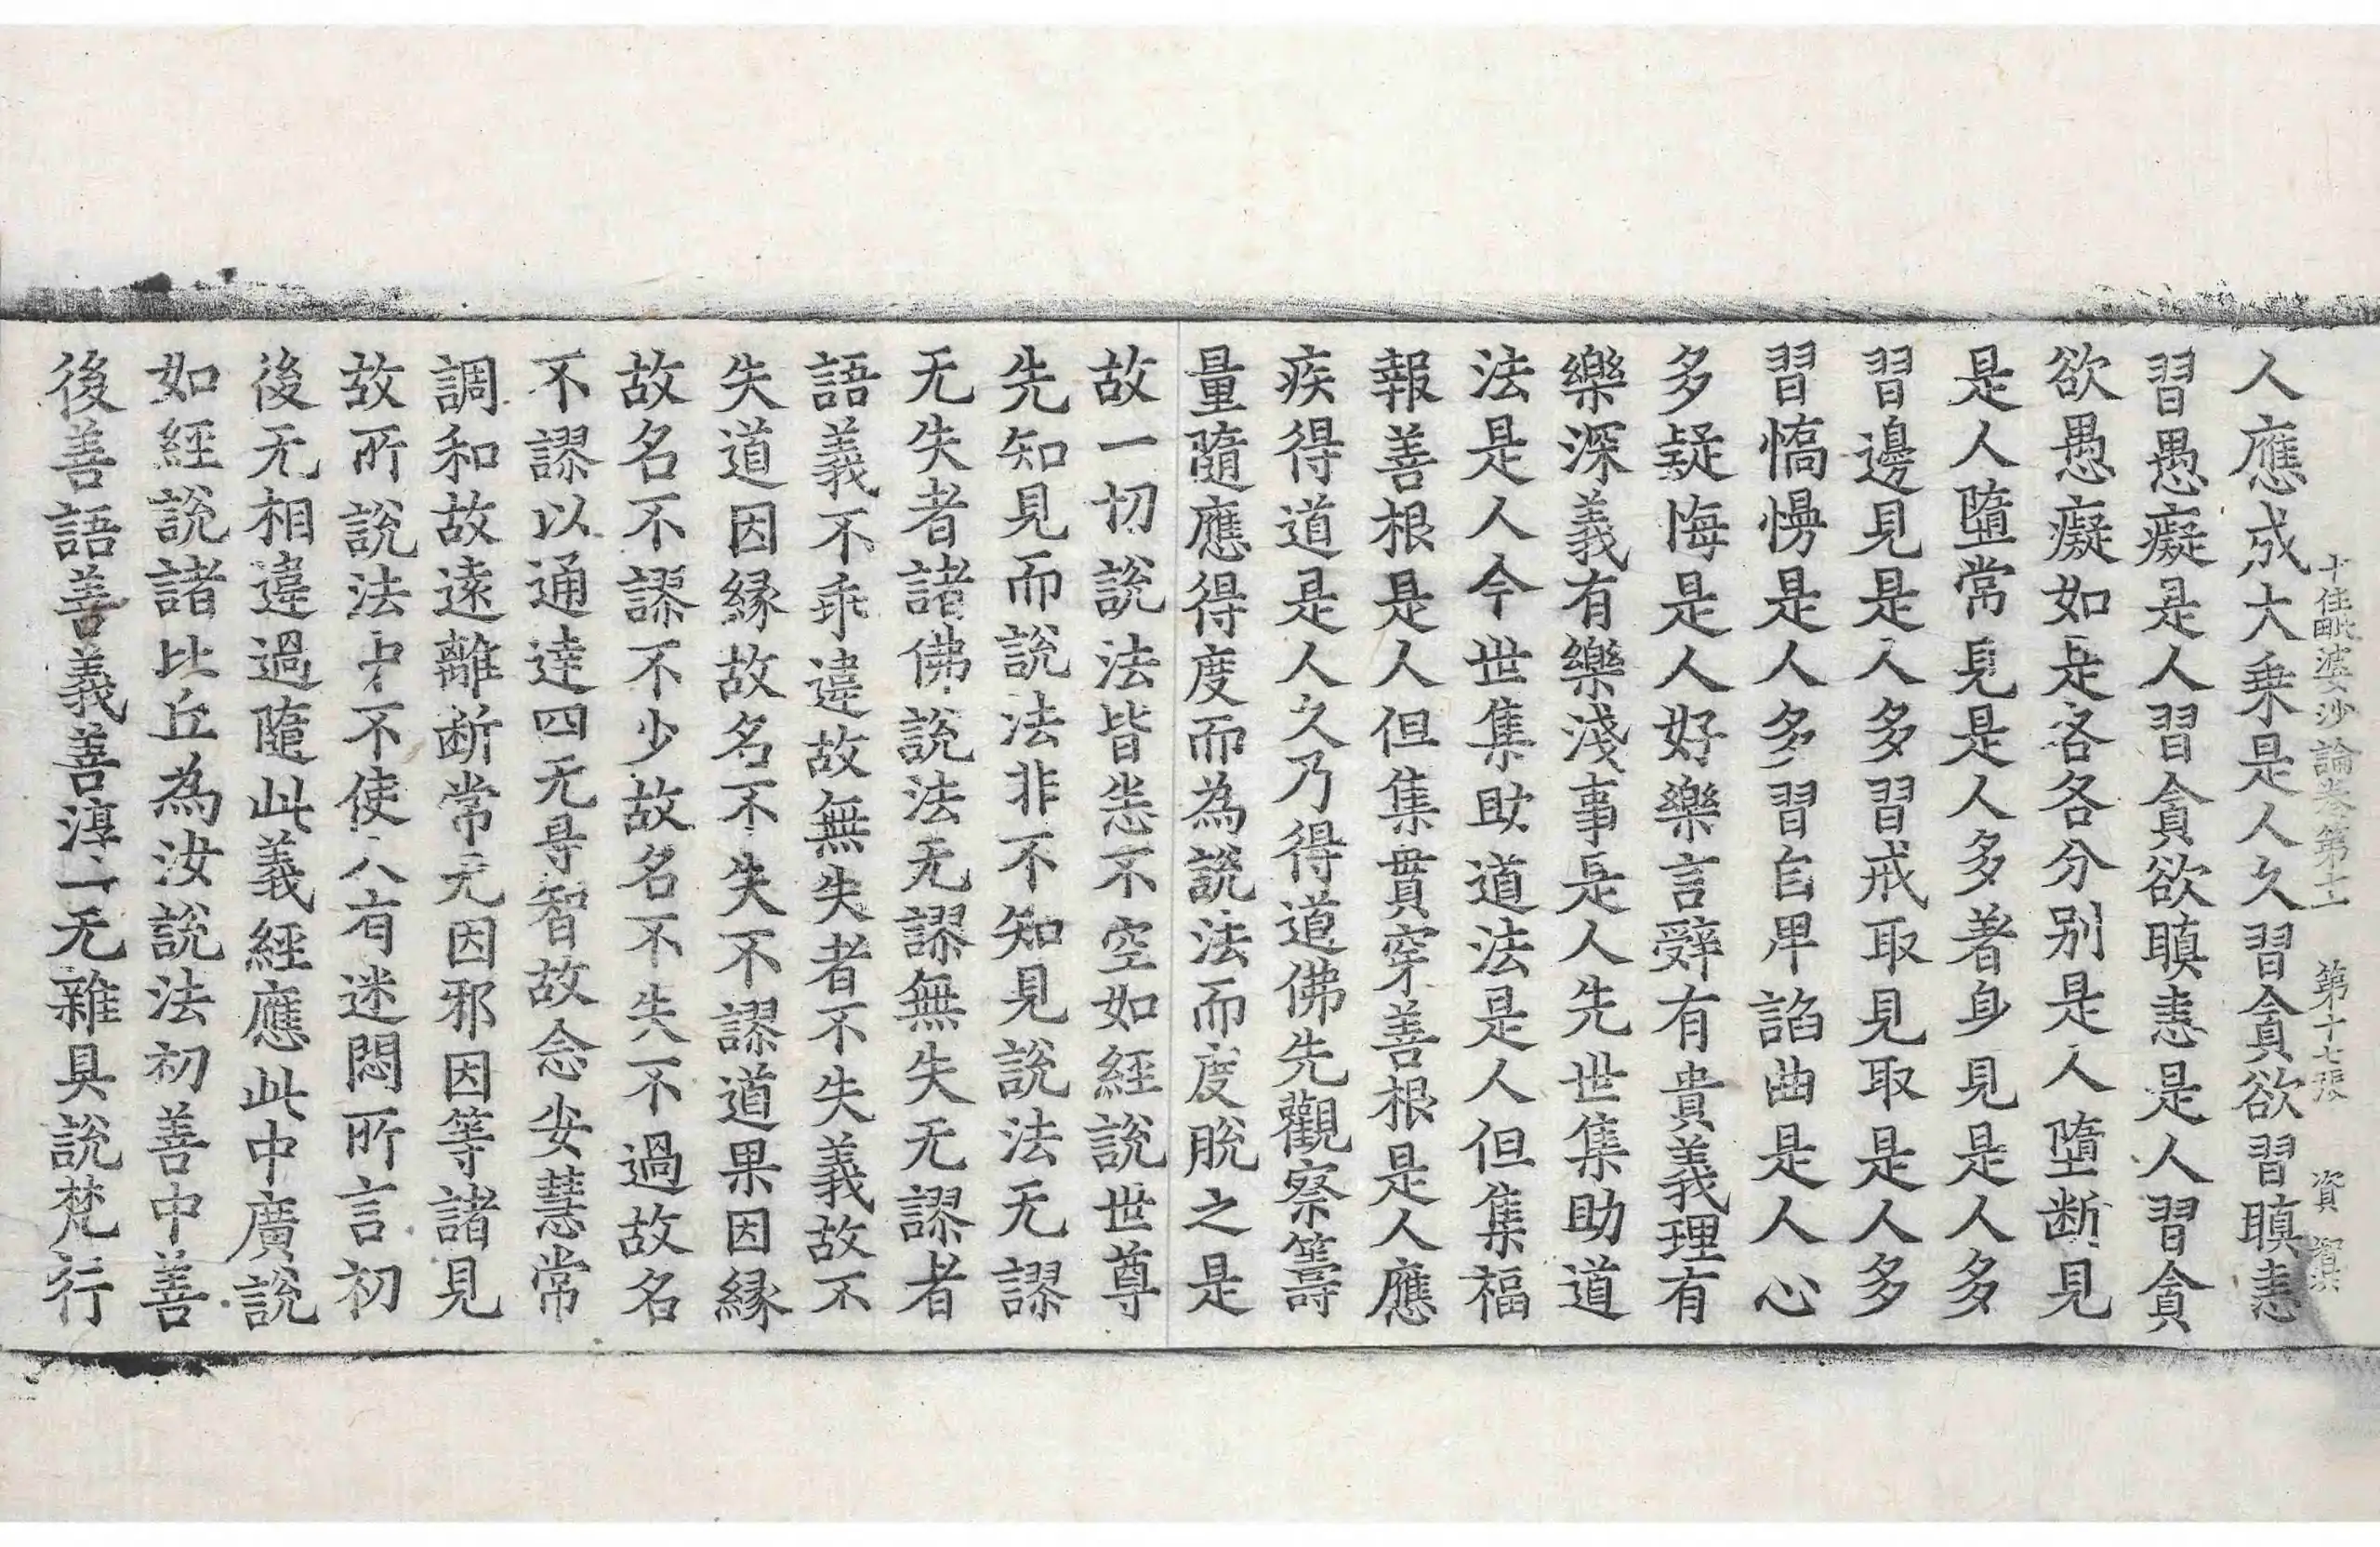 十住毗婆沙論卷第十一　第十七張　資
人應成大乗是人久習貪欲習瞋恚
習愚癡是人習貪欲瞋恚是人習貪
欲愚癡如是各各分别是人墮断見
是人墮常見是人多著身見是人多
習邊見是人多習戒取見取是人多
習憍慢是人多習自卑諂曲是人心
多疑悔是人好樂言辭有貴義理有
樂深義有樂淺事是人先世集助道
法是人今世集助道法是人但集福
報善根是人但集貫穿善根是人應
疾得道是人久乃得道佛先觀察籌
量隨應得度而為説法而度脱之是
故一切説法皆悉不空如經説世尊
先知見而説法非不知見説法无謬
无失者諸佛説法无謬無失无謬者
語義不乖違故無失者不失義故不
失道因縁故名不失不謬道果因縁
故名不謬不少故名不失不過故名
不謬以通達四无㝵智故念安慧常
調和故遠離断常无因邪因等諸見
故所説法中不使人有迷悶所言初
後无相違過隨此義經應此中廣説
如經説諸比丘為汝説法初善中善
後善語善義善淳一无雜具説梵行